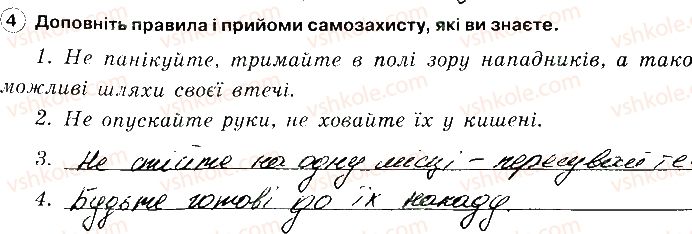 4 Доповніть правила і прийоми самозахисту, які ви знаєте.
1. Не панікуйте, тримайте в полі зору нападників, а тако
можливі шляхи своєї втечі.
2. Не опускайте руки, не ховайте їх у кишені.
3. Не стійте на одну місці – пересувайте
4. Будьте готові до їх нападу.
vshkole.com